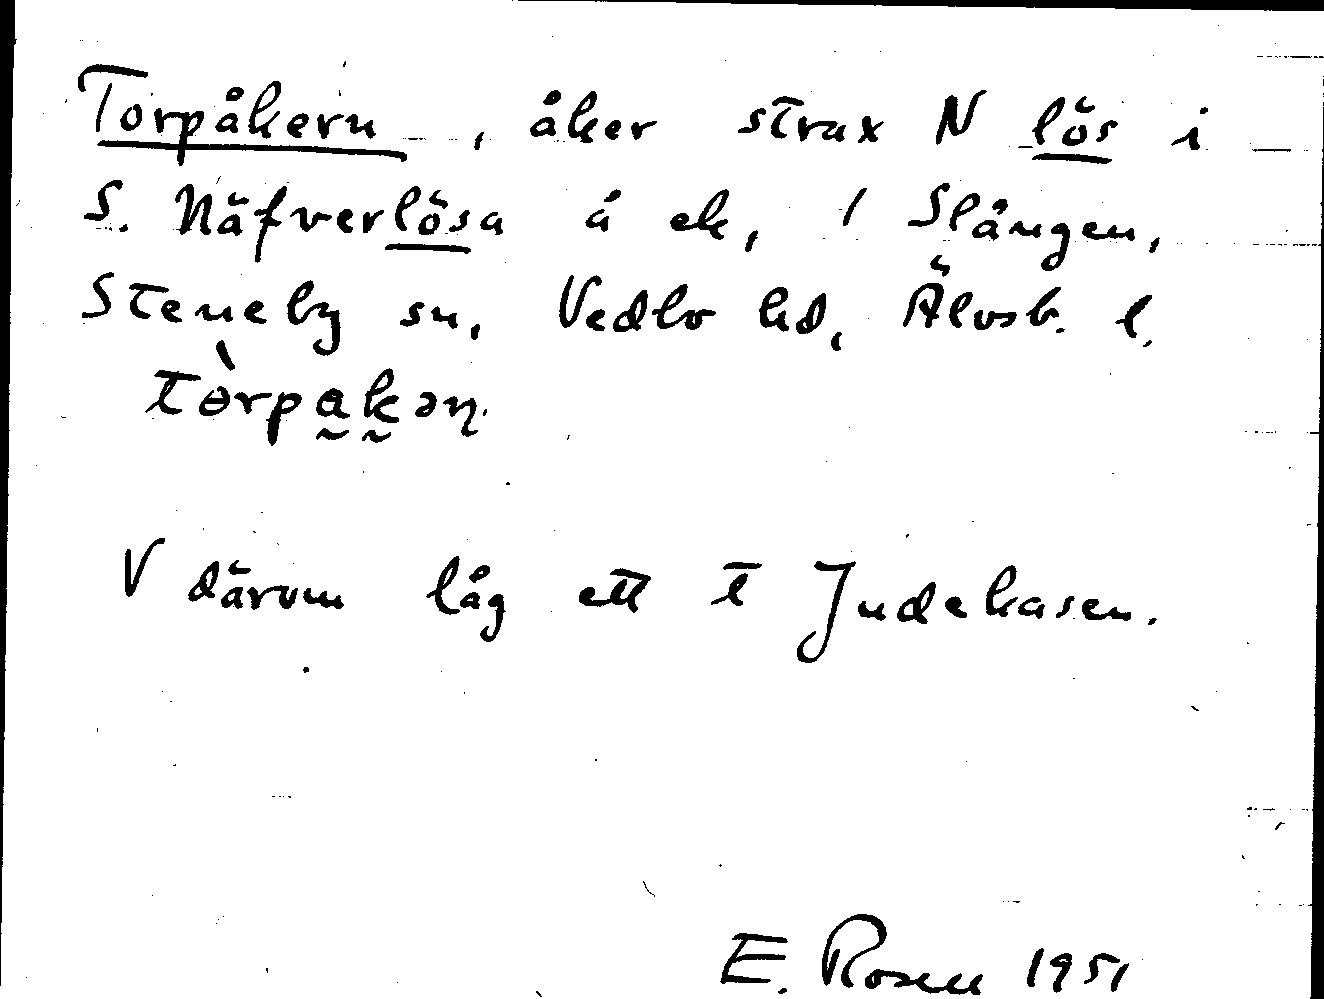 Torpåkern, åker strax N lös i
S. Näfverlösa å ek, / Slången,
Steneby sn, Vedbo hd, Älvsb. l.
tòrpakən
V därom låg ett t Judekasen.
E. Rosen 1951